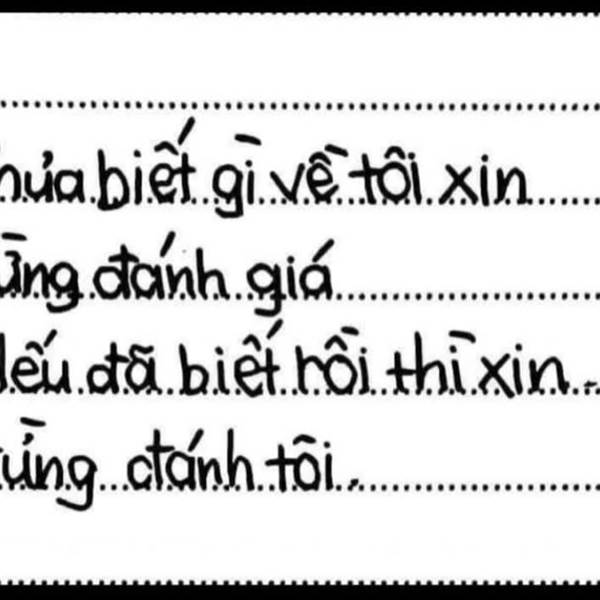 hưa biết gì về tôi xin
ừng đánh giá
ếu đã biết rồi thì xin
ừng đánh tôi.